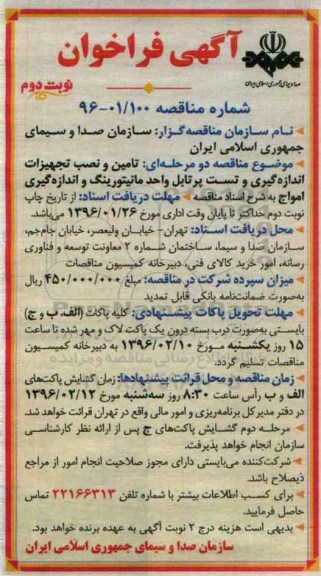 آگهی فراخوان
نوبت دوم
شماره مناقصه ۹۶-۰۱/۱۰۰
نام سازمان مناقصه‌گزار: سازمان صدا و سیمای
جمهوری اسلامی ایران
موضوع مناقصه دو مرحله‌ای: تامین و نصب تجهیزات
اندازه‌گیری و تست پرتابل واحد مانیتورینگ و اندازه‌گیری
امواج به شرح اسناد مناقصه مهلت دریافت اسناد: از تاریخ چاپ
نوبت دوم حداکثر تا پایان وقت اداری مورخ ۱۳۹۶/۰۱/۲۶ می‌باشد.
محل دریافت اسناد: تهران- خیابان ولیعصر، خیابان جام‌جم،
سازمان صدا و سیما، ساختمان شماره ۲ معاونت توسعه و فناوری
رسانه، امور خرید کالای فنی، دبیرخانه کمیسیون مناقصات
میزان سپرده شرکت در مناقصه: مبلغ ۴۵۰/۰۰۰/۰۰۰ ریال
به‌صورت ضمانت‌نامه بانکی قابل تمدید
مهلت تحویل پاکات پیشنهادی: کلیه پاکات (الف، ب و ج)
بایستی به‌صورت درب بسته درون یک پاکت لاک و مهر شده تا ساعت
۱۵ روز یکشنبه مورخ ۱۳۹۶/۰۲/۱۰ به دبیرخانه کمیسیون
مناقصات تسلیم گردد.
زمان مناقصه و محل قرائت پیشنهادها: زمان گشایش پاکت‌های
الف و ب رأس ساعت ۸:۳۰ روز سه‌شنبه مورخ ۱۳۹۶/۰۲/۱۲
در دفتر مدیر کل برنامه‌ریزی و امور مالی واقع در تهران قرائت خواهد شد.
مرحله دوم گشایش پاکت‌های ج پس از ارائه نظر کارشناسی
سازمان انجام خواهد پذیرفت.
شرکت‌کننده می‌بایستی دارای مجوز صلاحیت انجام امور از مراجع
ذیصلاح باشد.
برای کسب اطلاعات بیشتر با شماره تلفن ۲۲۱۶۶۳۱۳ تماس
حاصل فرمایید.
بدیهی است هزینه درج ۲ نوبت آگهی به عهده برنده خواهد بود.
سازمان صدا و سیمای جمهوری اسلامی ایران